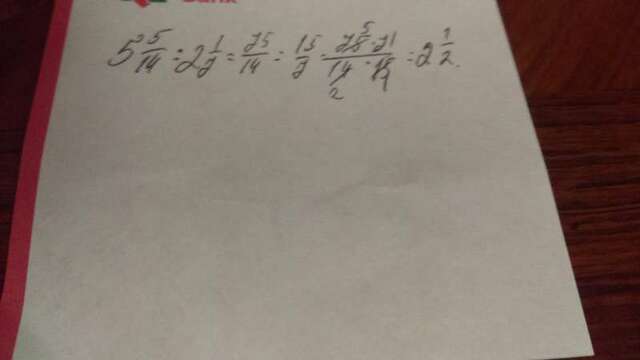 Bank
5 5/14 : 2 1/7 = 75/14 : 15/7 = 75 · 7 / 14 · 15 = 2 1/2.